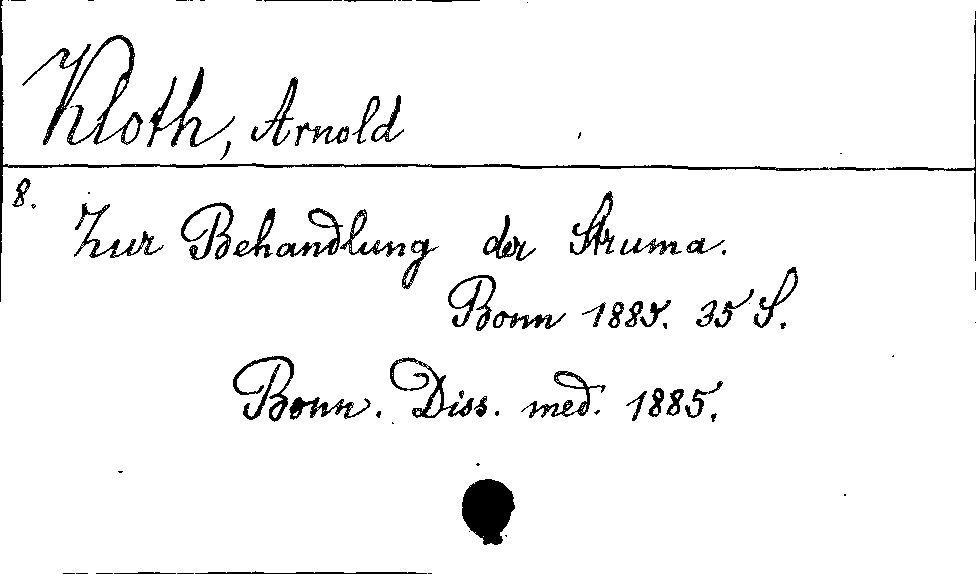 Kloth, Arnold
8.
Zur Behandlung der Struma.
Bonn 1885. 35 S.
Bonn. Diss. med. 1885.